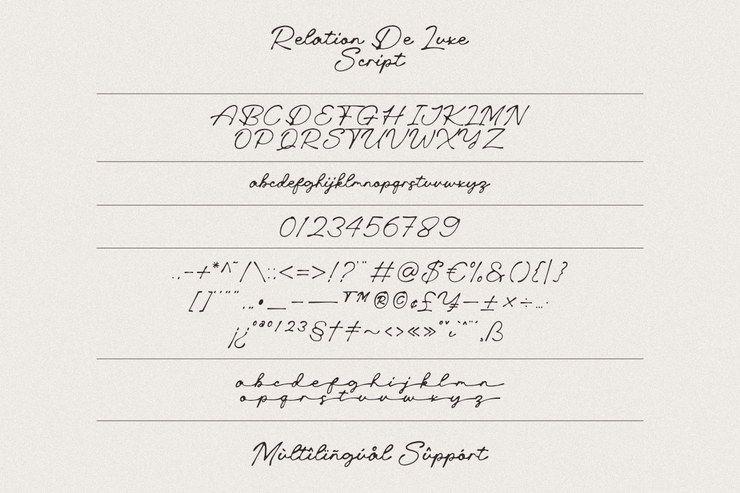 Relation De Luxe
Script
ABCDEFGHIJKLMN
OPQRSTUVWXYZ
abcdefghijklmnopqrstuvwxyz
0123456789
.,-+*^~/\:;<=>!?'"#@$€%&(){|}
[]‘’“”‚„•_–—™®©¢£¥−±×÷…·
¡¿°ªº¹²³§†‡~‹›«»
abcdefghijklmn
opqrstuvwxyz
Mùltîlingúål Sûppórt